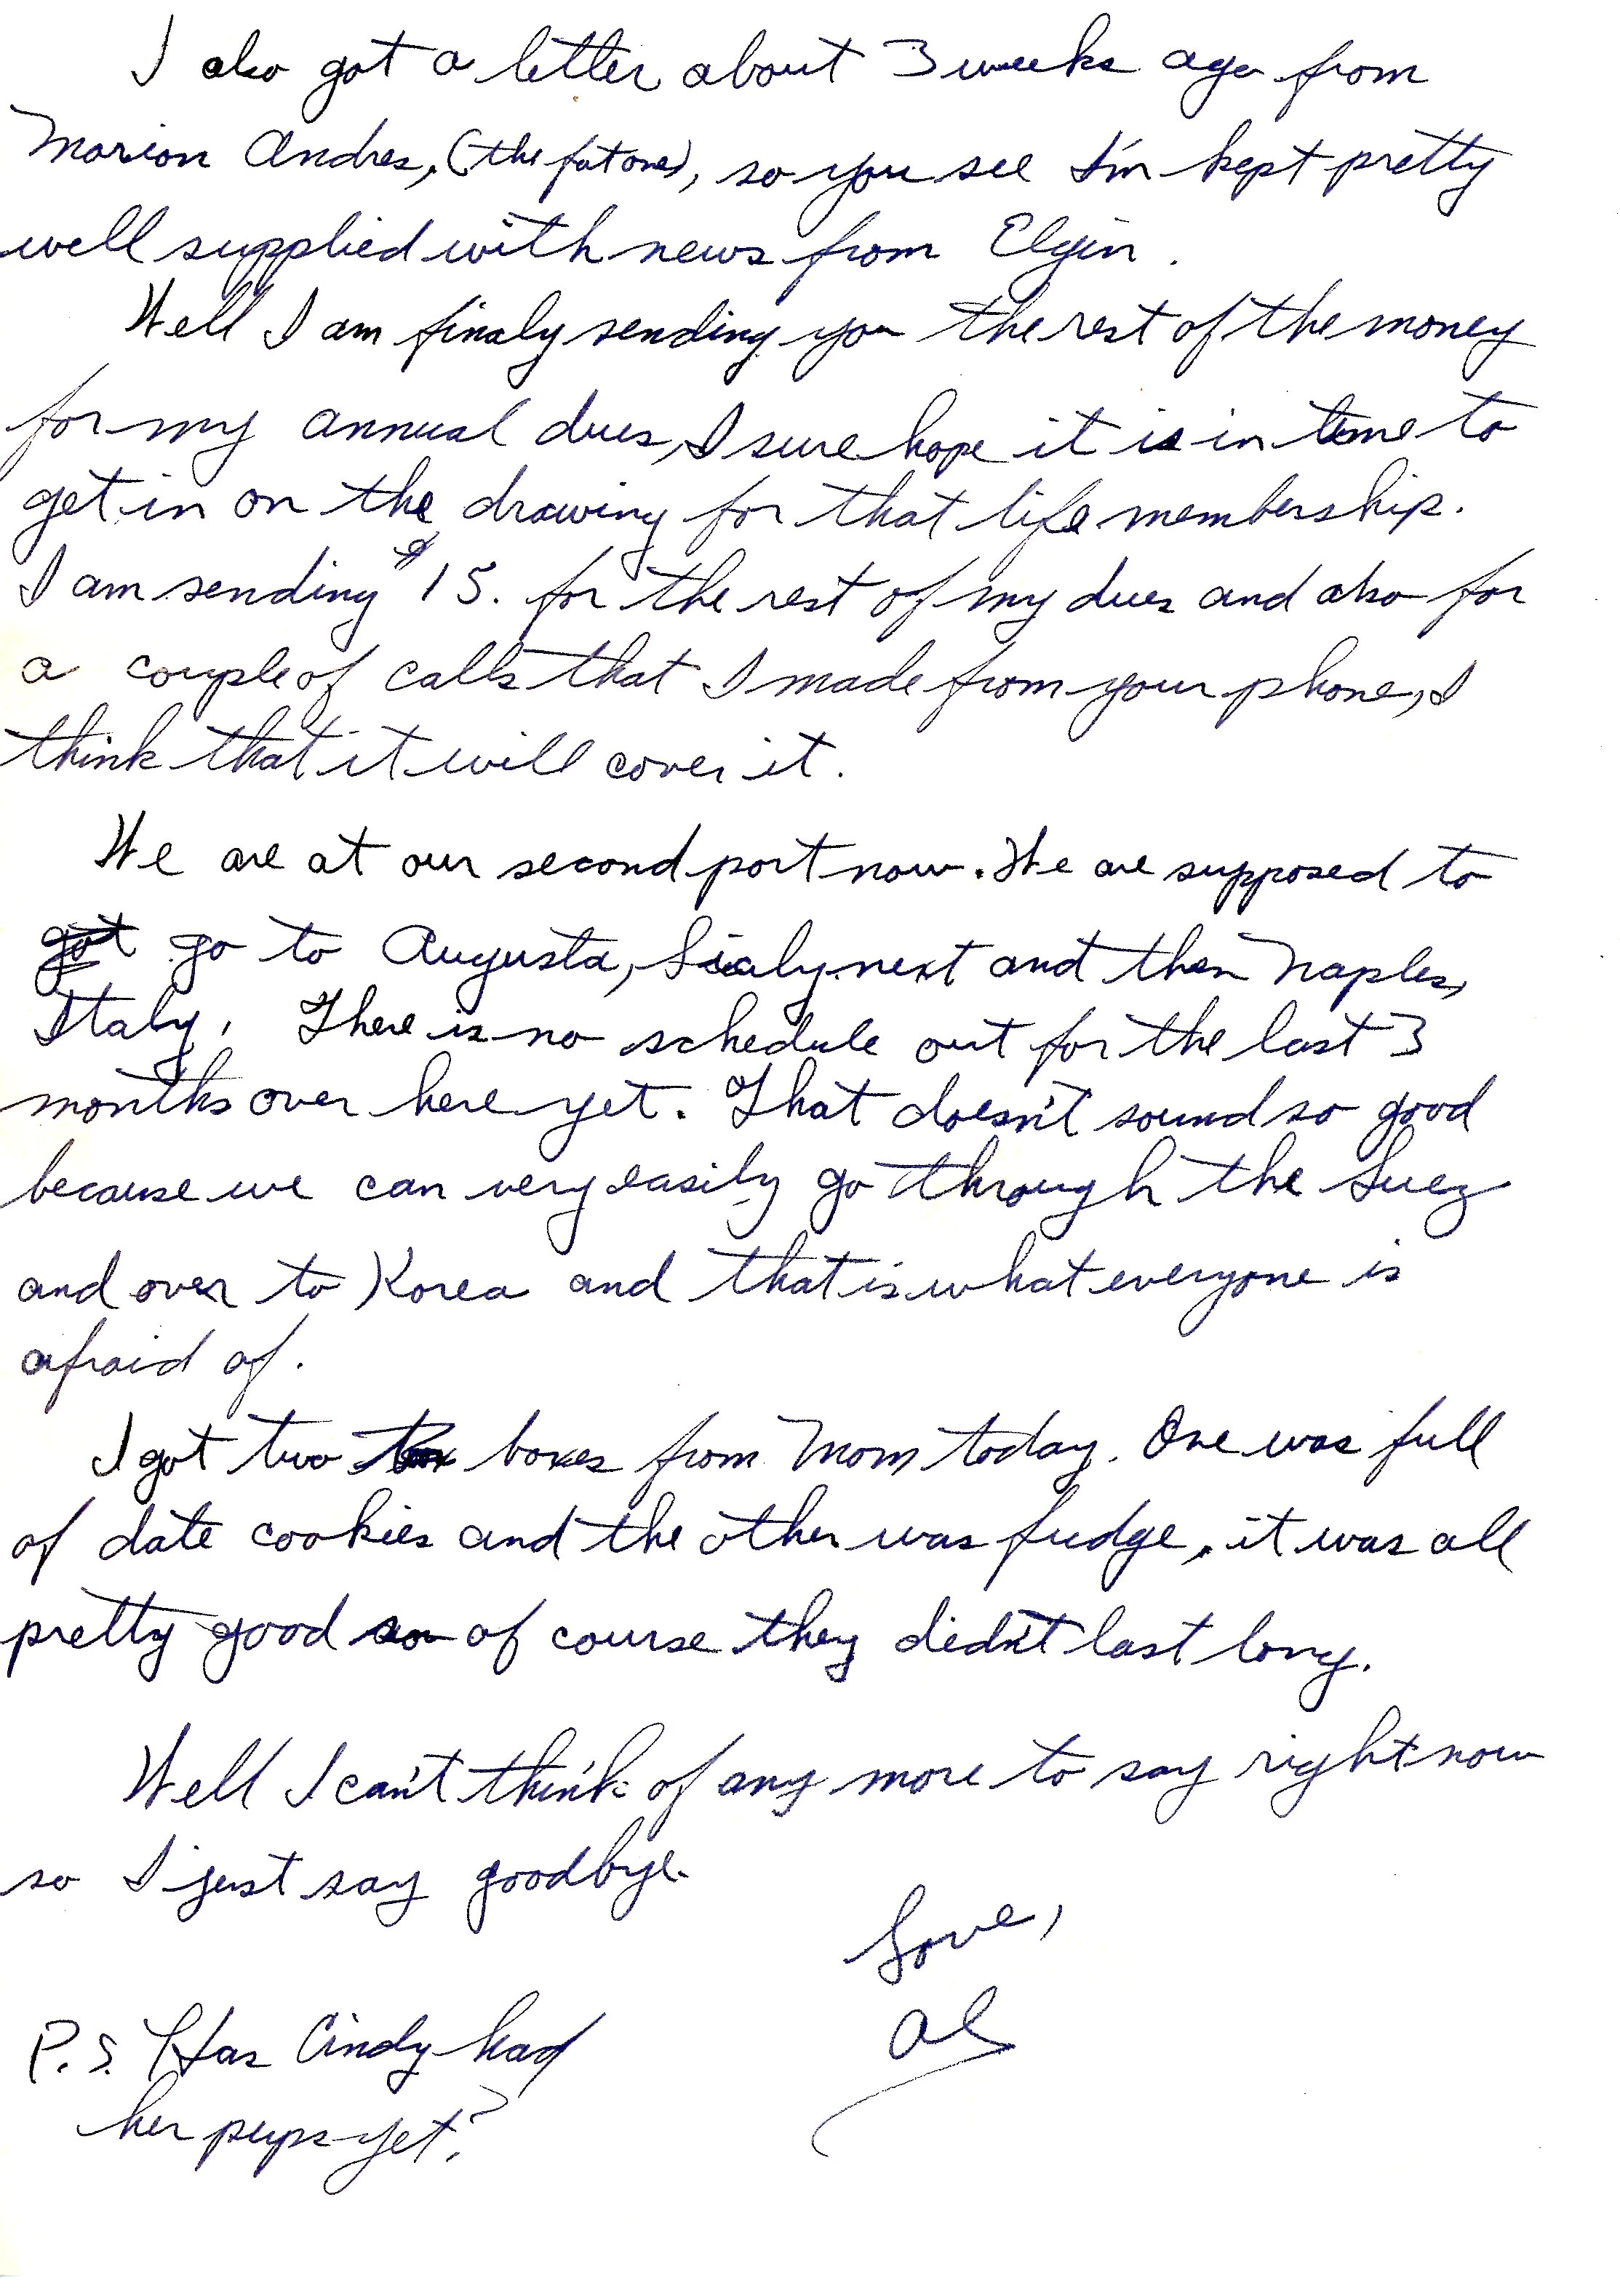 I also got a letter about 3 weeks ago from
Marion Andres, (the fat one), so you see I'm kept pretty
well supplied with news from Elgin.
Well I am finaly sending you the rest of the money
for my annual dues, I sure hope it is in time to
get in on the drawing for that life membership.
I am sending $15. for the rest of my dues and also for
a couple of calls that I made from your phone, I
think that it will cover it.
We are at our second port now. We are supposed to
got go to Augusta, Sicaly next and then Naples,
Italy. There is no schedule out for the last 3
months over here yet. That doesn't sound so good
because we can very easily go through the Suez
and over to Korea and that is what everyone is
afraid of.
I got two box boxes from Mom today. One was full
of date cookies and the other was fudge, it was all
pretty good so of course they didn't last long.
Well I can't think of any more to say right now
so I just say goodbye.
Love,
Al
P.S. Has Cindy had
her pups yet?